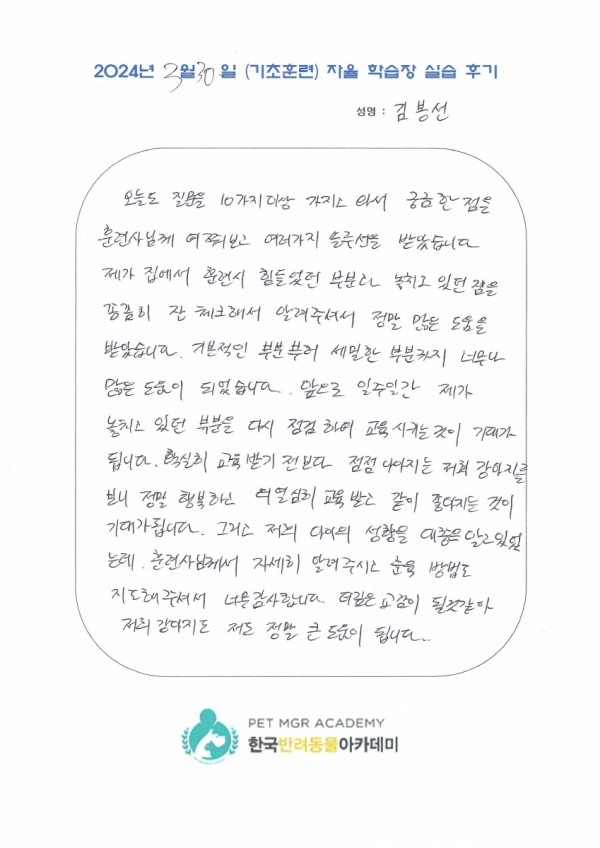 2024년 3월 30일 (기초훈련) 자율 학습장 실습 후기
성명 : 김봉선
오늘도 질문을 10가지이상 가지고 와서 궁금한 점을
훈련사님께 여쭤보고 여러가지 솔루션을 받았습니다
제가 집에서 훈련시 힘들었던 부분과 놓치고 있던 점을
꼼꼼히 잘 체크해서 알려주셔서 정말 많은 도움을
받았습니다. 기본적인 부분부터 세밀한 부분까지 너무나
많은 도움이 되었습니다. 앞으로 일주일간 제가
놓치고 있던 부분을 다시 점검하여 교육시키는것이 기대가
됩니다. 확실히 교육받기 전보다 점점 나아지는 저희 강아지를
보니 정말 행복하고 더 열심히 교육받고 같이 좋아지는 것이
기대가됩니다. 그리고 저희 다이의 성향을 대충은 알고있었
는데. 훈련사님께서 자세히 알려주시고 훈육 방법도
지도해주셔서 너무감사합니다 더깊은 교감이 될것같아
저희 강아지도 저도 정말 큰 도움이 됩니다..
PET MGR ACADEMY
한국반려동물아카데미